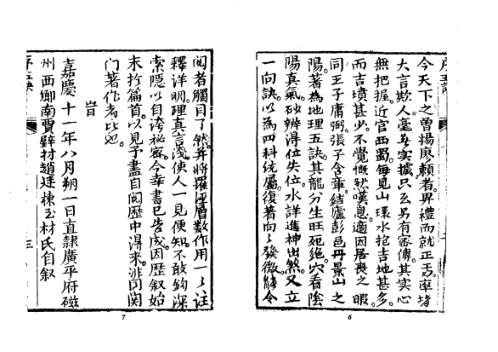 今天下之曾揚廖賴者畀禮而就正焉率皆
大言欺人毫無實據只云另有密傳其實心
無把握近官西蜀每見山環水抱吉地甚多
而吉墳甚少不覺慨然嘆息適因居喪之暇
同王子庸弼張子含章結廬彭邑丹景山之
陽著為地理五訣其龍分生旺死絕穴看陰
陽真氣砂辨得位失位水詳進神出煞又立
一向訣以為四科統屬復著向々發微能令
6
閱者觸目了然并將羅經層數作用一一註
釋詳明理真言淺使人一見便知不敢鈎深
索隱以自誇秘密今華書已告成因歷叙始
末於篇首以見予盡自閱歷中得來非同閉
門著作者比也
旹
嘉慶十一年八月朔一日直隸廣平府磁
州西鄉南賈壁村趙廷棟玉材氏自叙
三
7